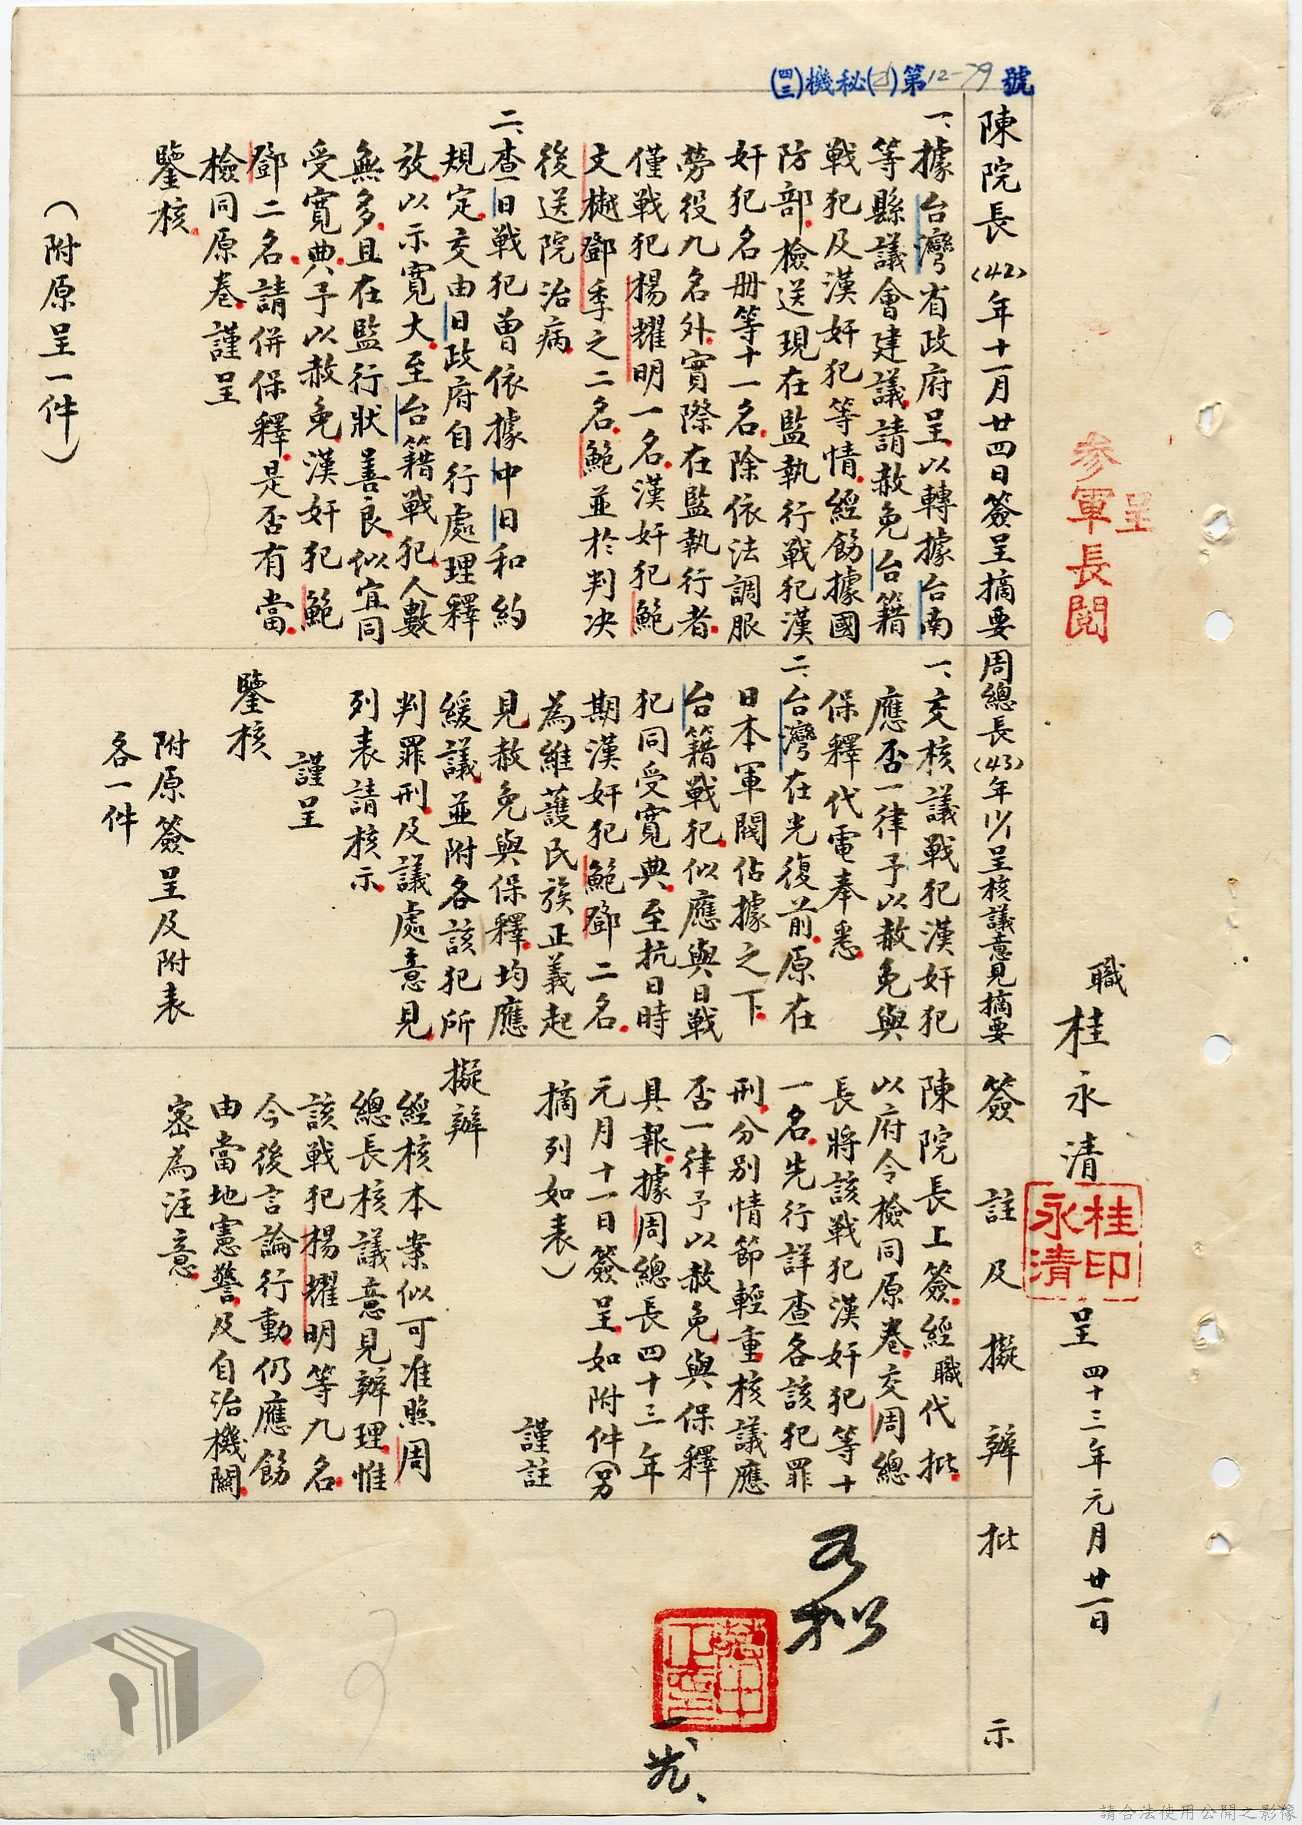 (四三)機秘(乙)第12-79號
呈
參軍長閱
職桂永清呈四十三年元月廿一日
桂永清印
陳院長(42)年十一月廿四日簽呈摘要
一、據台灣省政府呈以轉據台南
等縣議會建議請赦免台籍
戰犯及漢奸犯等情經飭據國
防部檢送現在監執行戰犯漢
奸犯名册等十一名除依法調服
勞役九名外實際在監執行者
僅戰犯楊耀明一名漢奸犯鮑
文樾鄧季之二名鮑並於判決
後送院治病
二、查日戰犯曾依據中日和約
規定交由日政府自行處理釋
放以示寬大至台籍戰犯人數
無多且在監行狀善良似宜同
受寬典予以赦免漢奸犯鮑
鄧二名請併保釋是否有當
檢同原卷謹呈
鑒核
(附原呈一件)
周總長(43)年呈核議意見摘要
一、交核議戰犯漢奸犯
應否一律予以赦免與
保釋代電奉悉
二、台灣在光復前原在
日本軍閥佔據之下
台籍戰犯似應與日戰
犯同受寬典至抗日時
期漢奸犯鮑鄧二名
為維護民族正義起
見赦免與保釋均應
緩議並附各該犯所
判罪刑及議處意見
列表請核示
謹呈
鑒核
附原簽呈及附表
各一件
簽註及擬辦
陳院長上簽經職代批
以府令檢同原卷交周總
長將該戰犯漢奸犯等十
一名先行詳查各該犯罪
刑分別情節輕重核議應
否一律予以赦免與保釋
具報據周總長四十三年
元月十一日簽呈如附件(另
摘列如表)
謹註
擬辦
經核本案似可准照周
總長核議意見辦理惟
該戰犯楊耀明等九名
今後言論行動仍應飭
由當地憲警及自治機關
密為注意
批示
蔣中正印
請合法使用公開之影像